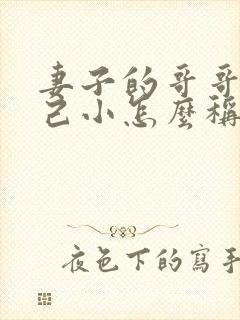 妻子的哥哥
己小怎麼稱
夜色下的寫手